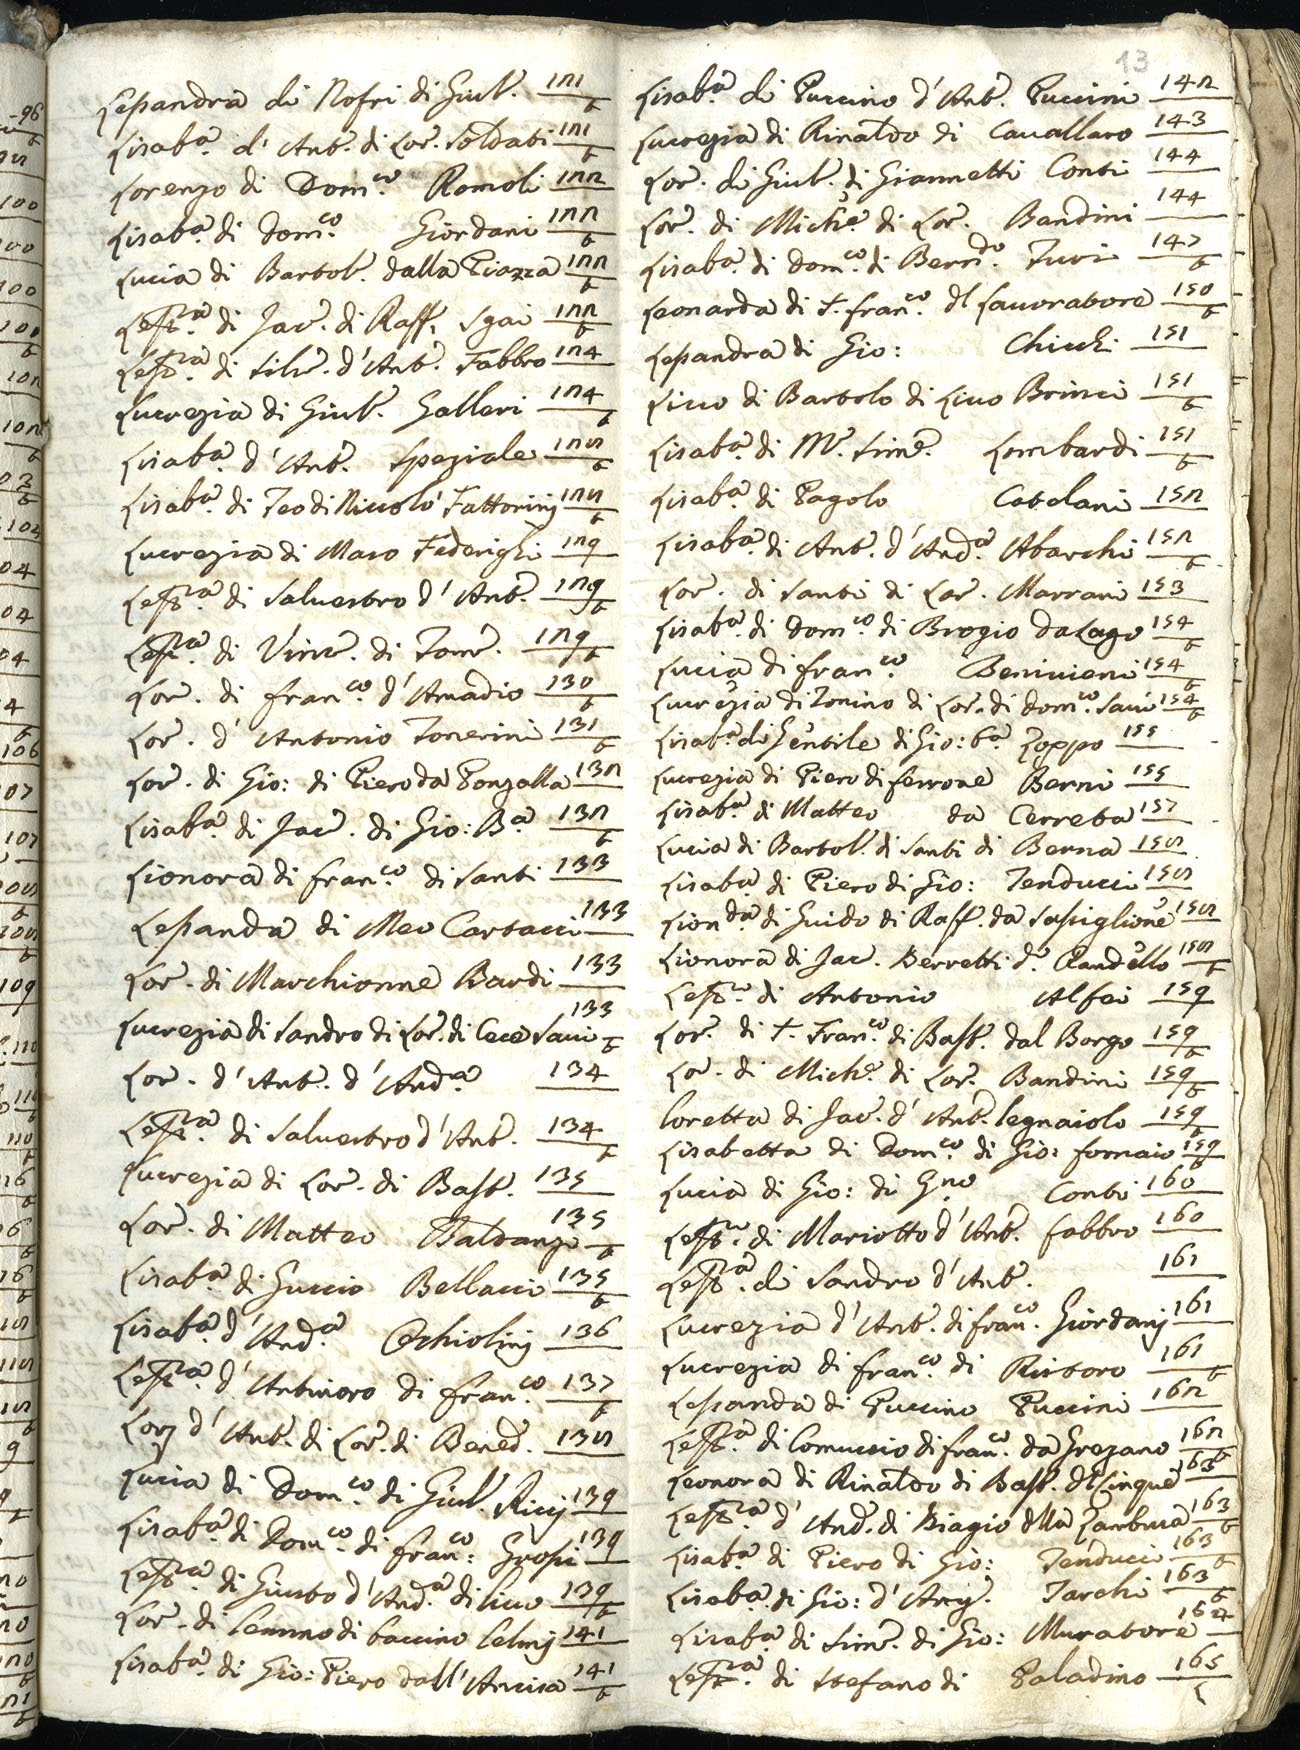 13
Lesandra di Nofri di Giul.º 121 t
Lisab.ª d' Ant.º di Lor.º Soldati 121 t
Lorenzo di Dom.co Romoli 122
Lisab.ª di Dom.co Giordani 122 t
Lucia di Bartol.º dalla Piazza 122 t
Less.ra di Jac.º di Raff. Sgai 122 t
Less.ra di Silv.º d'Ant.º Fabbro 124
Lucrezia di Giul.º Galleri 124 t
Lisab.ª d'Ant.º Speziale 128 t
Lisab.ª di Teo di Niccolò Fattorinj 128 t
Lucrezia di Maso Federighi 129
Less.ra di Salvestro d'Ant.º 129 t
Less.ra di Vinc.º di Tom.º 129 t
Lor.º di Fran.co d'Amadio 130 t
Lor.º d' Antonio Tonerini 131 t
Lor.º di Gio: di Piero da Ponzalla 132
Lisab.ª di Jac.º di Gio: B.ª 132 t
Lionora di Fran.co di Santi 133
Lesanda di Meo Cartacci 133
Lor.º di Marchionne Bardi 133
Lucrezia di Sandro di Lor.º di Cece Savi 133 t
Lor.º d'Ant.º d'And.ª 134
Less.ra di Salvestro d'Ant.º 134 t
Lucrezia di Lor.º di Bast.º 135
Lor.º di Matteo Baldanzi 135 t
Lisab.ª di Guccio Bellacci 135 t
Lisab.ª d'And.ª Ochiolinj 136
Less.ra d'Antinoro di Fran.co 137 t
Lorz d'Ant.º di Lor.º di Bened.º 138
Lucia di Dom.co di Giul.º Riccj 139
Lisab.ª di Dom.co di Fran.co: Grossi 139
Less.ra di Giusto d'And.ª di Lico 139 t
Lor.º di Cennino di Baccino Celinj 141
Lisab.ª di Gio: Piero dall'Ancisa 141 t
Lisab.ª di Puccino d'Ant.º Puccini 142
Lucrezia di Rinaldo di Cavallaro 143
Lor.º di Giul.º di Giannetti Conti 144
Lor.º di Mich.e di Lor.º Bandini 144
Lisab.ª di Dom.co di Bern.do Turi 147 t
Leonarda di S. Fran.co del Lavoratore 150 t
Lesandra di Gio: Chicchi 151
Lico di Bartolo di Lico Brinci 151 t
Lisab.ª di M.º Sim.e Lombardi 151 t
Lisab.ª di Pagolo Catelani 152
Lisab.ª di Ant.º d'And.ª Abarchi 152 t
Lor.º di Santi di Lor.º Marrani 153
Lisab.ª di Dom.co di Brogio da Lago 154 t
Lucia di Fran.co Benivieni 154 t
Lucrezia di Tonino di Lor.º di Dom.co Savi 154 t
Lisab.ª di Gentile di Gio: B.ª Zoppo 155
Lucrezia di Piero di Ferrone Berni 155
Lisab.ª di Matteo da Cerreta 157
Lucia di Bartol.º di Santi di Berna 158
Lisab.ª di Piero di Gio: Tenducci 158
Lion.da di Guido di Raff. da Sapiglione 158
Lionora di Jac.º Berretti d.º Randello 158 t
Less.ra di Antonio Alfei 159
Lor.º di S. Fran.co di Bast.º dal Borgo 159 t
Lor.º di Mich.e di Lor.º Bandini 159 t
Loretta di Jac.º d'Ant.º legnaiolo 159 t
Lisabetta di Dom.co di Gio: fornaio 159 t
Lucia di Gio: di G.no Conti 160
Less.ra di Mariotto d'Ant.º fabbro 160
Less.ra di Sandro d'Ant.º 161
Lucrezia d'Ant.º di Fran.co Giordanj 161
Lucrezia di Fran.co di Ristoro 161 t
Lesanda di Puccino Puccini 162
Less.ra di Comuccio di Fran.co da Grezano 162 t
Leonora di Rinaldo di Bast.º del Cinque 163
Less.ra d'And.ª di Biagio della Zambra 163 t
Lisab.ª di Piero di Gio: Tenducci 163 t
Lisab.ª di Gio: d'Ang.º Tarchi 163 t
Lisab.ª di Sim.e di Gio: Muratore 164
Less.ra di Stefano di Paladino 165 t